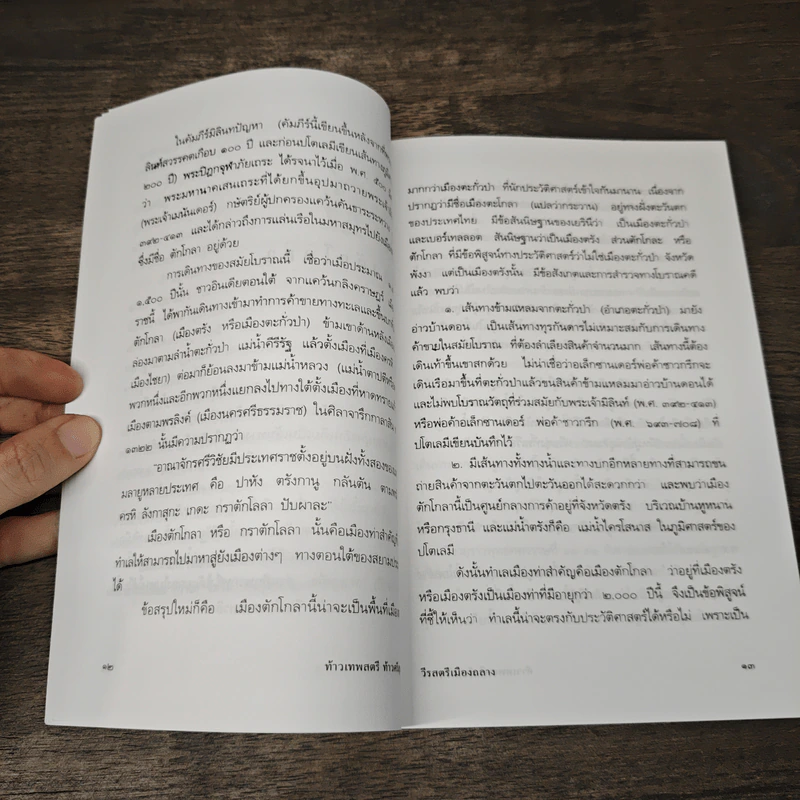 ในคัมภีร์มิลินทปัญหา (คัมภีร์นี้เขียนขึ้นหลังจาก
ลินท์สวรรคตเกือบ ๑๐๐ ปี และก่อนปโตเลมีเขียนเส้นทาง
๒๐๐ ปี) พระปิฎกจุฬาภัยเถระ ได้รจนาไว้เมื่อ พ.ศ. ๕๐๐
ว่า พระมหานาคเสนเถระที่ได้ยกขึ้นอุปมาถวายพระเจ้า
(พระเจ้าเมนันเดอร์) กษัตริย์ผู้ปกครองแคว้นคันธาระระหว่าง
๓๙๒-๔๑๓ และได้กล่าวถึงการแล่นเรือในมหาสมุทรไปยังเมือง
ซึ่งมีชื่อ ตักโกลา อยู่ด้วย
การเดินทางของสมัยโบราณนี้ เชื่อว่าเมื่อประมาณ
๑,๕๐๐ ปีนั้น ชาวอินเดียตอนใต้ จากแคว้นกลิงคราษฎร์
ราชนี้ ได้พากันเดินทางเข้ามาทำการค้าขายทางทะเลและขึ้นบก
ตักโกลา (เมืองตรัง หรือเมืองตะกั่วป่า) ข้ามเขาด้านหลังเมือง
ล่องมาตามลำน้ำตะกั่วป่า แม่น้ำคีรีรัฐ แล้วตั้งเมืองที่เมือง
เมืองไชยา) ต่อมาก็ย้อนลงมาข้ามแม่น้ำหลวง (แม่น้ำตาปี
พวกหนึ่งและอีกพวกหนึ่งแยกลงไปทางใต้ตั้งเมืองที่หาดทราย
เมืองตามพรลิงค์ (เมืองนครศรีธรรมราช) ในศิลาจารึกกาลาสัน
๑๓๒๒ นั้นมีความปรากฏว่า
“อาณาจักรศรีวิชัยมีประเทศราชตั้งอยู่บนฝั่งทั้งสองของ
มลายูหลายประเทศ คือ ปาหัง ตรังกานู กลันตัน ตาม
ครหิ ลังกาสุกะ เกตะ กราตักโลลา ปับผาละ”
เมืองตักโกลา หรือ กราตักโลลา นั้นคือเมืองท่าสำคัญ
ทำเลให้สามารถไปมาหาสู่ยังเมืองต่างๆ ทางตอนใต้ของสยาม
ได้
ข้อสรุปใหม่ก็คือ เมืองตักโกลานี้น่าจะเป็นพื้นที่เมือง
๑๒ ท้าวเทพสตรี
มากกว่าเมืองตะกั่วป่า ที่นักประวัติศาสตร์เข้าใจกันมานาน เนื่องจาก
ปรากฏว่ามีชื่อเมืองตะโกลา (แปลว่ากระวาน) อยู่ทางฝั่งตะวันตก
ของประเทศไทย มีข้อสันนิษฐานของเยรินีว่า เป็นเมืองตะกั่วป่า
และเบอร์เทลลอต สันนิษฐานว่าเป็นเมืองตรัง ส่วนตักโกละ หรือ
ตักโกลา ที่มีข้อพิสูจน์ทางประวัติศาสตร์ว่าไม่ใช่เมืองตะกั่วป่า จังหวัด
พังงา แต่เป็นเมืองตรังนั้น มีข้อสังเกตและการสำรวจทางโบราณคดี
แล้ว พบว่า
๑. เส้นทางข้ามแหลมจากตะกั่วป่า (อำเภอตะกั่วป่า) มายัง
อ่าวบ้านดอน เป็นเส้นทางทุรกันดารไม่เหมาะสมกับการเดินทาง
ค้าขายในสมัยโบราณ ที่ต้องลำเลียงสินค้าจำนวนมาก เส้นทางนี้ต้อง
เดินเท้าขึ้นเขาสกด้วย ไม่น่าเชื่อว่าอเล็กซานเดอร์พ่อค้าชาวกรีกจะ
เดินเรือมาขึ้นที่ตะกั่วป่าแล้วขนสินค้าข้ามแหลมมาอ่าวบ้านดอนได้
และไม่พบโบราณวัตถุที่ร่วมสมัยกับพระเจ้ามิลินท์ (พ.ศ. ๓๙๒-๔๑๓)
หรือพ่อค้าอเล็กซานเดอร์ พ่อค้าชาวกรีก (พ.ศ. ๖๙๓-๗๐๘) ที่
ปโตเลมีเขียนบันทึกไว้
๒. มีเส้นทางทั้งทางน้ำและทางบกอีกหลายทางที่สามารถขน
ถ่ายสินค้าจากตะวันตกไปตะวันออกได้สะดวกกว่า และพบว่าเมือง
ตักโกลานี้เป็นศูนย์กลางการค้าอยู่ที่จังหวัดตรัง บริเวณบ้านหูหนาน
หรือกรุงธานี และแม่น้ำตรังก็คือ แม่น้ำไครโสนาส ในภูมิศาสตร์ของ
ปโตเลมี
ดังนั้นทำเลเมืองท่าสำคัญคือเมืองตักโกลา ว่าอยู่ที่เมืองตรัง
หรือเมืองตรังเป็นเมืองท่าที่มีอายุกว่า ๒,๐๐๐ ปีนี้ จึงเป็นข้อพิสูจน์
ที่ชี้ให้เห็นว่า ทำเลนี้น่าจะตรงกับประวัติศาสตร์ได้หรือไม่ เพราะเป็น
วีรสตรีเมืองถลาง ๑๓